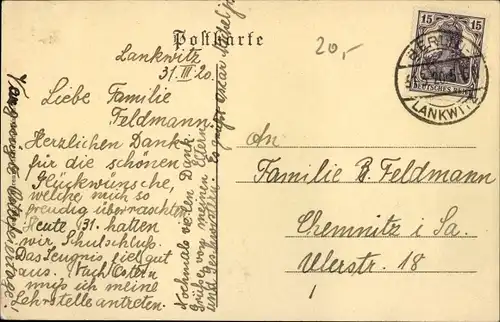 Postkarte
20,-
15 15
DEUTSCHES REICH
BERLIN
LANKWITZ
Lankwitz
31. III 20.
Liebe Familie
Feldmann.
Herzlichen Dank
für die schönen
Glückwünsche,
welche mich so
freudig überraschten
Heute 31. hatten
wir Schulschluß.
Das Zeugnis fiel gut
aus. Nach Ostern
muß ich meine
Lehrstelle antreten.
Nochmals vielen Dank
Grüße von meinen Eltern
und Geschwistern. Es grüßt Oskar
An
Familie B. Feldmann
Chemnitz i Sa.
Ulerstr. 18